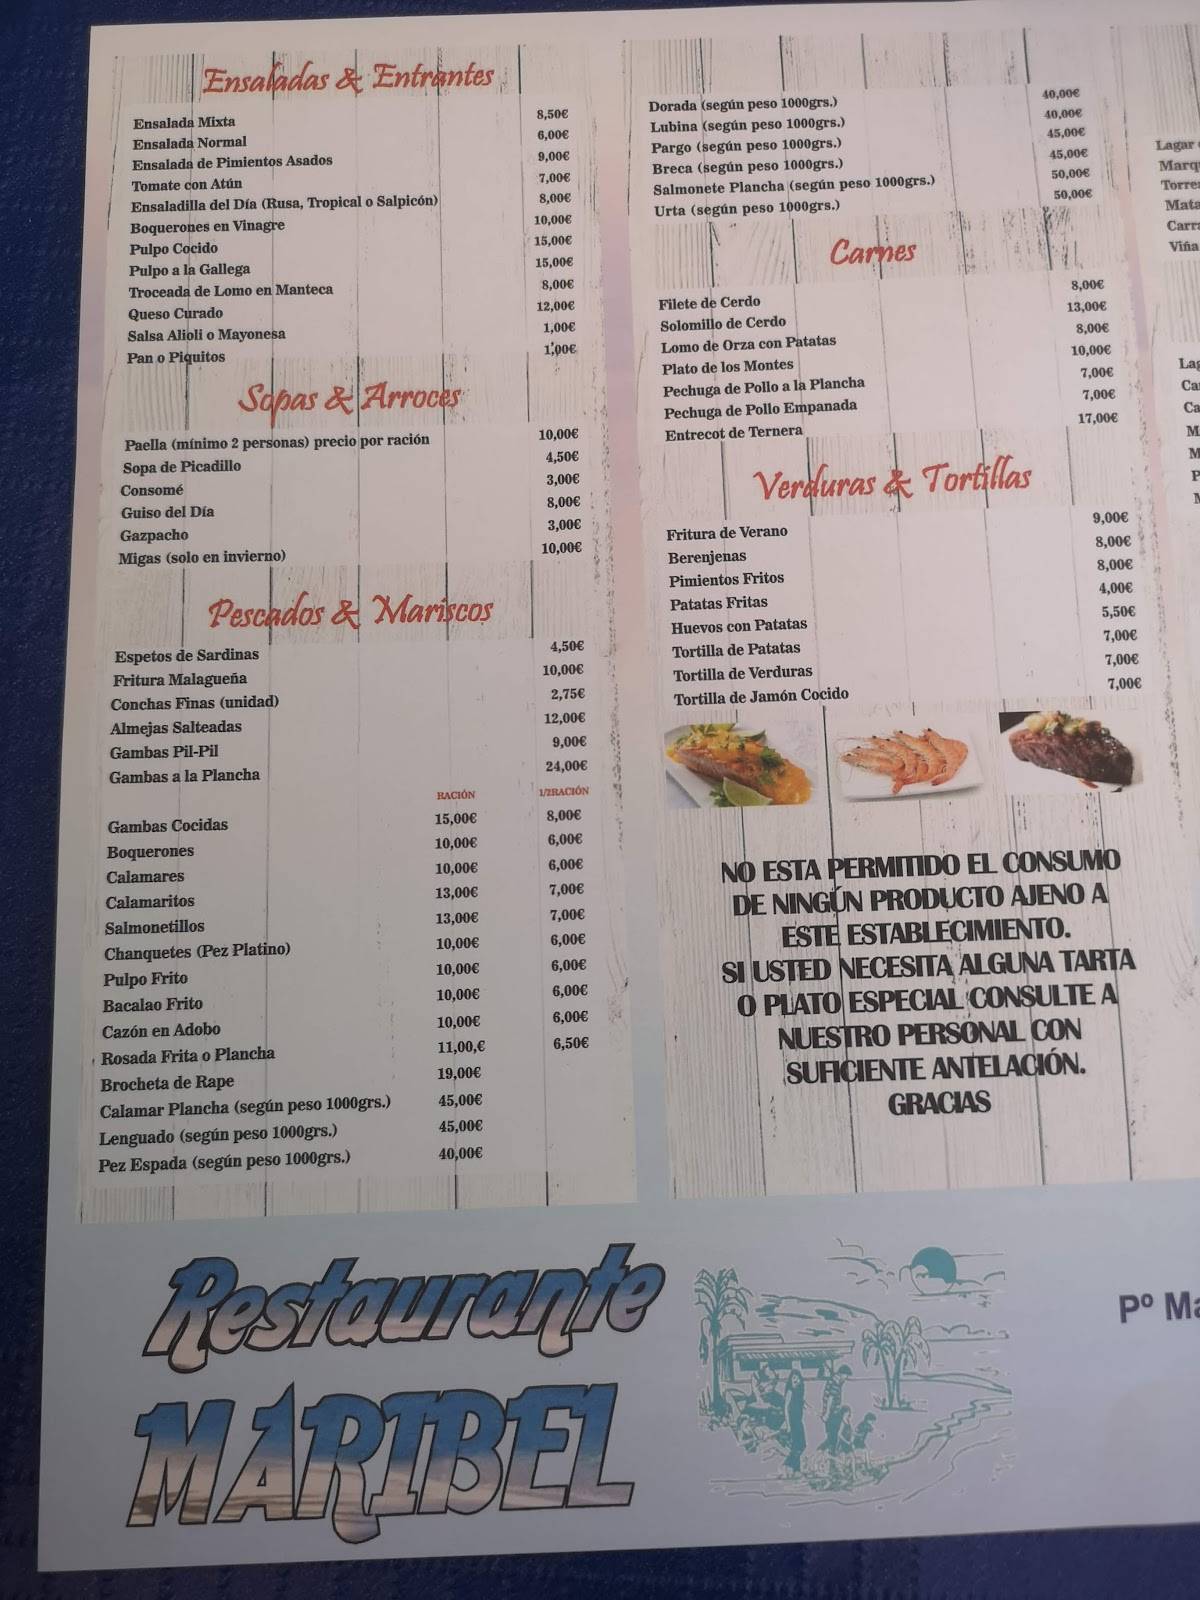 Ensaladas & Entrantes
Ensalada Mixta 8,50€
Ensalada Normal 6,00€
Ensalada de Pimientos Asados 9,00€
Tomate con Atún 7,00€
Ensaladilla del Día (Rusa, Tropical o Salpicón) 8,00€
Boquerones en Vinagre 10,00€
Pulpo Cocido 15,00€
Pulpo a la Gallega 15,00€
Troceada de Lomo en Manteca 8,00€
Queso Curado 12,00€
Salsa Alioli o Mayonesa 1,00€
Pan o Piquitos 1,00€
Sopas & Arroces
Paella (mínimo 2 personas) precio por ración 10,00€
Sopa de Picadillo 4,50€
Consomé 3,00€
Guiso del Día 8,00€
Gazpacho 3,00€
Migas (solo en invierno) 10,00€
Pescados & Mariscos
Espetos de Sardinas 4,50€
Fritura Malagueña 10,00€
Conchas Finas (unidad) 2,75€
Almejas Salteadas 12,00€
Gambas Pil-Pil 9,00€
Gambas a la Plancha 24,00€
RACIÓN 1/2RACIÓN
Gambas Cocidas 15,00€ 8,00€
Boquerones 10,00€ 6,00€
Calamares 10,00€ 6,00€
Calamaritos 13,00€ 7,00€
Salmonetillos 13,00€ 7,00€
Chanquetes (Pez Platino) 10,00€ 6,00€
Pulpo Frito 10,00€ 6,00€
Bacalao Frito 10,00€ 6,00€
Cazón en Adobo 10,00€ 6,00€
Rosada Frita o Plancha 11,00,€ 6,50€
Brocheta de Rape 19,00€
Calamar Plancha (según peso 1000grs.) 45,00€
Lenguado (según peso 1000grs.) 45,00€
Pez Espada (según peso 1000grs.) 40,00€
Dorada (según peso 1000grs.) 40,00€
Lubina (según peso 1000grs.) 40,00€
Pargo (según peso 1000grs.) 45,00€
Breca (según peso 1000grs.) 45,00€
Salmonete Plancha (según peso 1000grs.) 50,00€
Urta (según peso 1000grs.) 50,00€
Carnes
Filete de Cerdo 8,00€
Solomillo de Cerdo 13,00€
Lomo de Orza con Patatas 8,00€
Plato de los Montes 10,00€
Pechuga de Pollo a la Plancha 7,00€
Pechuga de Pollo Empanada 7,00€
Entrecot de Ternera 17,00€
Verduras & Tortillas
Fritura de Verano 9,00€
Berenjenas 8,00€
Pimientos Fritos 8,00€
Patatas Fritas 4,00€
Huevos con Patatas 5,50€
Tortilla de Patatas 7,00€
Tortilla de Verduras 7,00€
Tortilla de Jamón Cocido 7,00€
NO ESTA PERMITIDO EL CONSUMO
DE NINGÚN PRODUCTO AJENO A
ESTE ESTABLECIMIENTO.
SI USTED NECESITA ALGUNA TARTA
O PLATO ESPECIAL CONSULTE A
NUESTRO PERSONAL CON
SUFICIENTE ANTELACIÓN.
GRACIAS
Lagar
Viña
Restaurante
MARIBEL
Pº